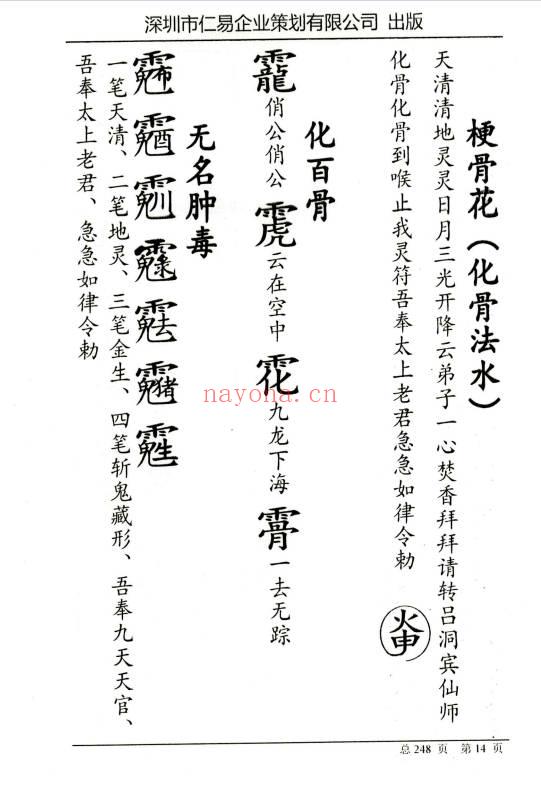 深圳市仁易企业策划有限公司 出版
梗骨花（化骨法水）
天清清地灵灵日月三光开降云弟子一心焚香拜拜请转吕洞宾仙师
化骨化骨到喉止我灵符吾奉太上老君急急如律令勅
化百骨
靇俏公俏公 云在空中 九龙下海 一去无踪
无名肿毒
一笔天清、二笔地灵、三笔金生、四笔斩鬼藏形、吾奉九天天官、
吾奉太上老君、急急如律令勅
nayona.cn
总 248 页 第 14 页